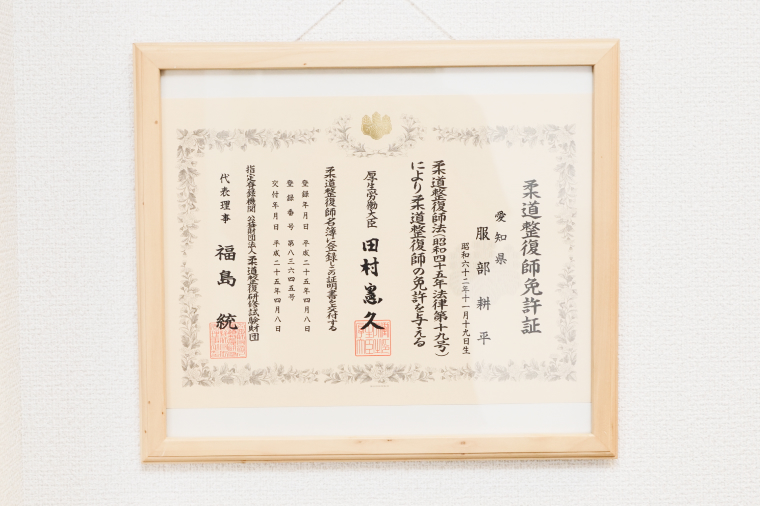 柔道整復師免許証
愛知県
服部耕平
昭和六十二年十一月十九日生
柔道整復師法(昭和四十五年法律第十九号)
により柔道整復師の免許を与える
厚生労働大臣 田村憲久
柔道整復師名簿に登録しこの証明書を交付する
登録年月日 平成二十五年四月八日
登録番号 第八三六四五号
交付年月日 平成二十五年四月八日
指定登録機関 公益財団法人柔道整復研修試験財団
代表理事 福島統